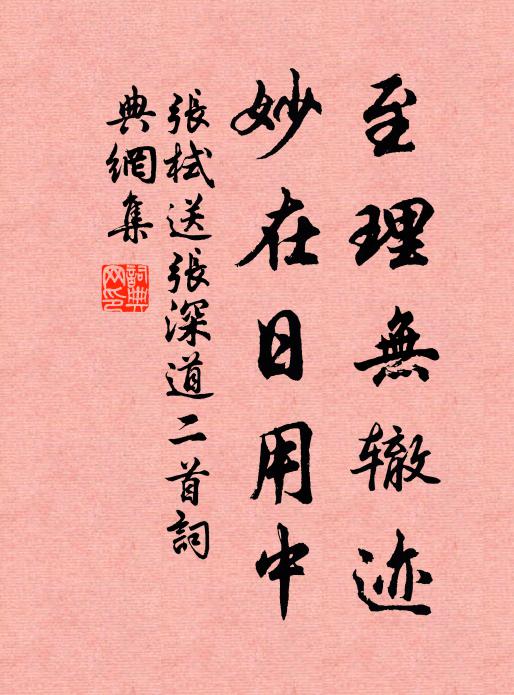 至理無辙迹
妙在日用中
張栻送張深道二首詞
典網集
詞典网印